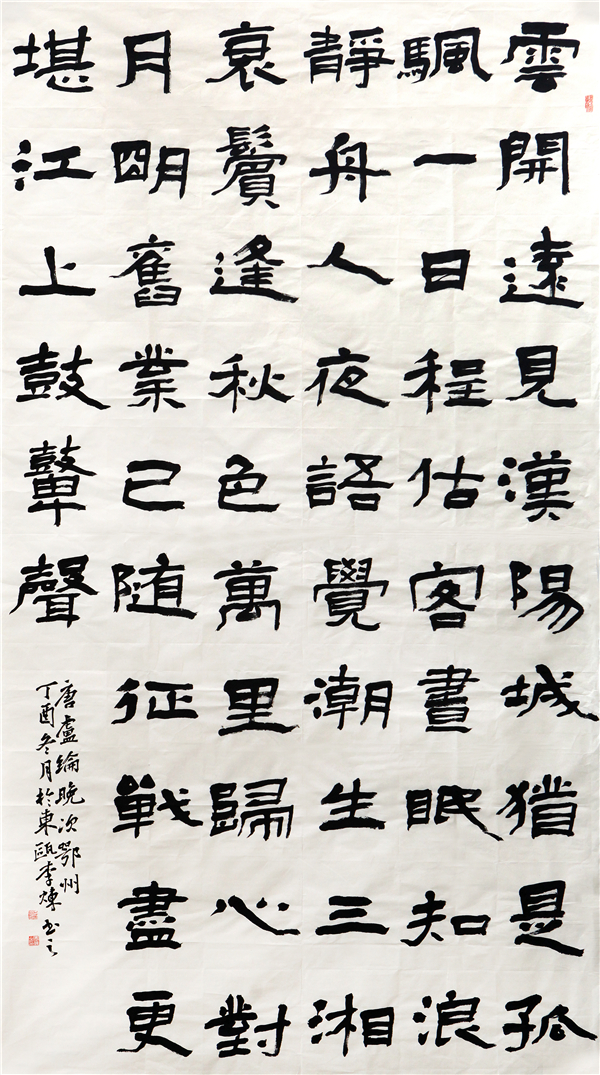 雲開遠見漢陽城猶是孤
颿一日程估客晝眠知浪
靜舟人夜語覺潮生三湘
衰鬢逢秋色萬里歸心對
月明舊業已随征戰盡更
堪江上鼓鼙聲
唐盧綸晚次鄂州
丁酉冬月於東甌李煉书之